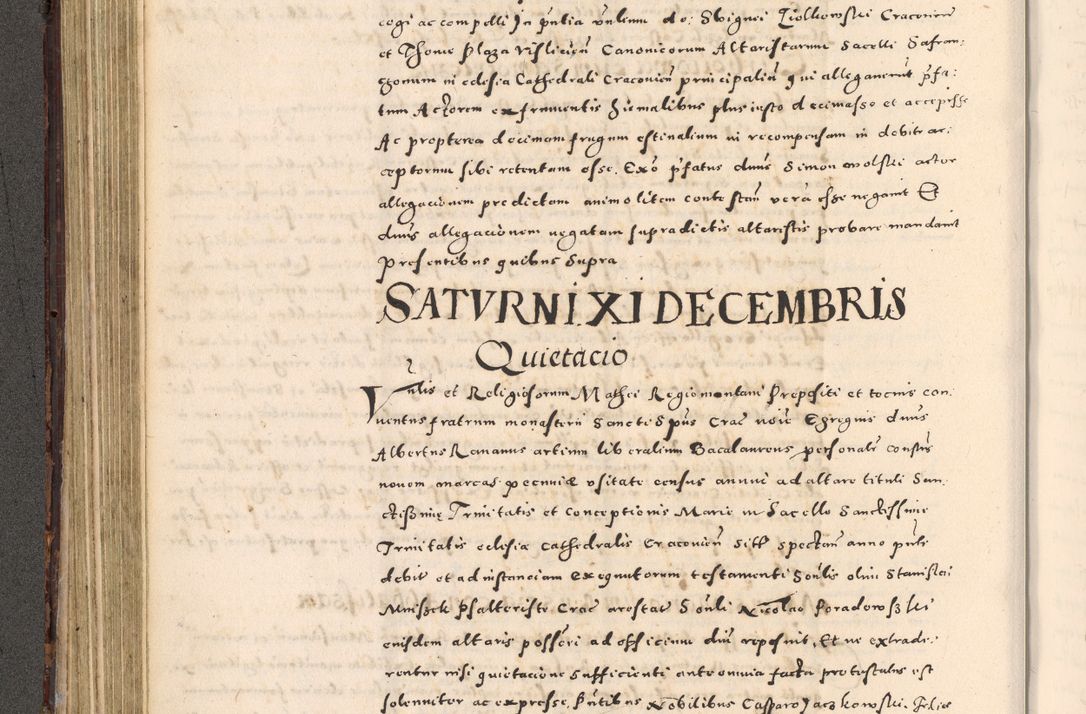 cogi ac compelli In pñtia vñlium do: Svignei Ziolkowskii Cracoviens
et Thome Plaza Visliciens Canonicorum Altaristarum Sacelli Safran:
zonum in eclesia Cathedrali Cracovien principaliũ qui alleganerunt pfa:
tum Actorem ex frumentis Hiemalibus plus iusto decimasse et accepisse
Ac propterea decimam frugum estivalium in recompensam in debite ac:
ceptorum sibi retentam esse. Exõ pfatus dnus Simon wolskii actor
allegacionem predictam animo litem contestan̄ verã esse negavit Et
dnus allegacionem negatam supradictis altaristis probare mandavit
presentibus quibus Supra
SATVRNI XI DECEMBRIS
Quietacio
Vñlis et Religiosorum Mathei Regiomontani Prepositi et tocius con:
ventus fratrum monasterii Sancti Spus Crac noīe Egregius dnus
Albertus Romanus artium liberalium Bacalaureus personalr constus
novem marcas pecuniæ vsitate census annui ad altare tituli San:
ctissimę Trinitatis et Conceptionis Marie in Sacello Sanctissime
Trinitatis eclesiæ Cathedralis Cracovien sitū spectan anno pñte
debit et ad instanciam exequutorum testamenti Sonlis olim Stanislai
Mniszek Psalteriste Crac arestat Sonli Nicolao Poradowszkii
eiusdem altaris possōri ad officium dnī reposuit, Et ne extrade:
rentur nisi quietacione sufficienti ante omnia facta protestatus est
solenniter ac expresse. Pñtibus Nobilibus Casparo Jaczkowskii. Felice